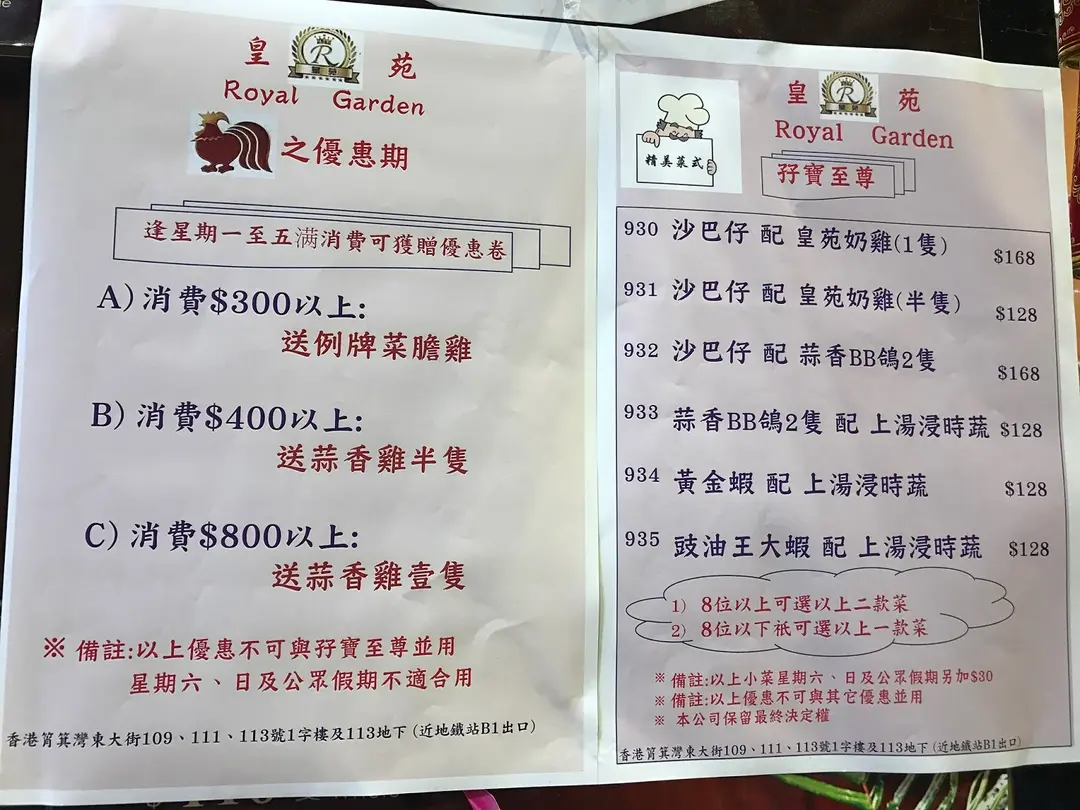 皇 苑
Royal Garden
之優惠期
逢星期一至五満消費可獲贈優惠卷
A) 消費$300以上:
送例牌菜膽雞
B) 消費$400以上:
送蒜香雞半隻
C) 消費$800以上:
送蒜香雞壹隻
※ 備註:以上優惠不可與孖寶至尊並用
星期六、日及公眾假期不適合用
香港筲箕灣東大街109、111、113號1字樓及113地下 (近地鐵站B1出口)
皇 苑
Royal Garden
精美菜式
孖寶至尊
930 沙巴仔 配 皇苑奶雞(1隻) $168
931 沙巴仔 配 皇苑奶雞(半隻) $128
932 沙巴仔 配 蒜香BB鴿2隻 $168
933 蒜香BB鴿2隻 配 上湯浸時蔬 $128
934 黃金蝦 配 上湯浸時蔬 $128
935 豉油王大蝦 配 上湯浸時蔬 $128
1) 8位以上可選以上二款菜
2) 8位以下祇可選以上一款菜
※ 備註:以上小菜星期六、日及公眾假期另加$30
※ 備註:以上優惠不可與其它優惠並用
※ 本公司保留最終決定權
香港筲箕灣東大街109、111、113號1字樓及113地下 (近地鐵站B1出口)